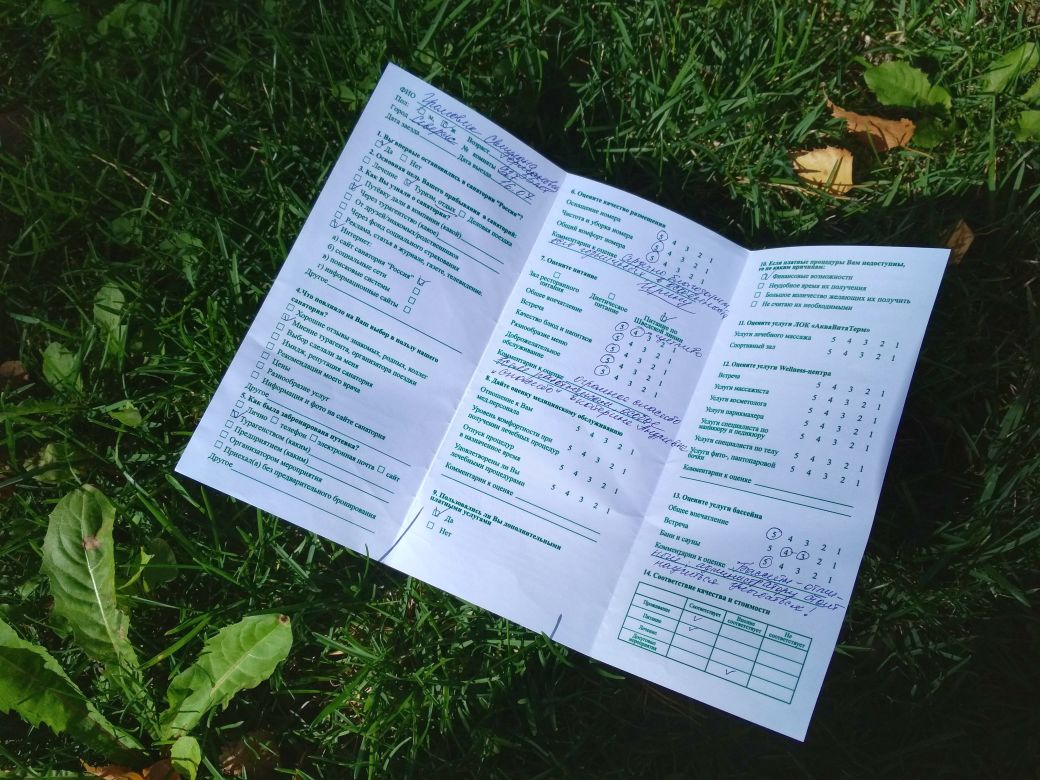 ФИО
Пол: м. ж. Возраст
Город № комнаты
Дата заезда Дата выезда 16.07
1. Вы впервые остановились в санатории "Россия"?
Да Нет
2. Основная цель Вашего прибывания в санаторий:
Лечение Туризм, отдых Деловая поездка
3. Как Вы узнали о санатории?
Путёвку дали в компании (какой)
Через турагентство (какое)
От друзей/знакомых/родственников
Через фонд социального страхования
Реклама, статья в журнале, газете, телевидение.
Интернет:
а) сайт санатория "Россия"
б) социальные сети
в) поисковые системы
г) информационные сайты
Другое
4. Что повлияло на Ваш выбор в пользу нашего
санатория?
Хорошие отзывы знакомых, родных, коллег
Мнение турагента, организатора поездки
Выбор сделали за меня
Имидж, репутация санатория
Рекомендация моего врача
Цены
Разнообразие услуг
Информация и фото на сайте санатория
Другое
5. Как была забронирована путевка?
Лично телефон электронная почта сайт
Турагентством (каким)
Предприятием (каким)
Организатором мероприятия
Приехал(а) без предварительного бронирования
Другое
6. Оцените качество размещения
Оснащение номера 5 4 3 2 1
Чистота и уборка номера 5 4 3 2 1
Общий комфорт номера 5 4 3 2 1
Комментарии к оценке
7. Оцените питание
Зал ресторанного питания Диетическое питание Питание по Шведской линии
Общее впечатление 5 4 3 2 1
Встреча 5 4 3 2 1
Качество блюд и напитков 5 4 3 2 1
Разнообразие меню 5 4 3 2 1
Доброжелательное
обслуживание 5 4 3 2 1
Комментарии к оценке
8. Дайте оценку медицинскому обслуживанию
Отношение к Вам
мед.персонала 5 4 3 2 1
Уровень комфортности при
получении лечебных процедур 5 4 3 2 1
Отпуск процедур
в назначенное время 5 4 3 2 1
Удовлетворены ли Вы
лечебными процедурами 5 4 3 2 1
Комментарии к оценке
9. Пользовались ли Вы дополнительными
платными услугами
Да
Нет
10. Если платные процедуры Вам недоступны,
то по каким причинам:
Финансовые возможности
Неудобное время их получения
Большое количество желающих их получить
Не считаю их необходимыми
11. Оцените услуги ЛОК «АкваВитаТерм»
Услуги лечебного массажа 5 4 3 2 1
Спортивный зал 5 4 3 2 1
12. Оцените услуги Wellness-центра
Встреча 5 4 3 2 1
Услуги массажиста 5 4 3 2 1
Услуги косметолога 5 4 3 2 1
Услуги парикмахера 5 4 3 2 1
Услуги специалиста по
маникюру и педикюру 5 4 3 2 1
Услуги специалиста по телу 5 4 3 2 1
Услуги фито-, пантопаровой
бочки 5 4 3 2 1
Комментарии к оценке
13. Оцените услуги бассейна
Общее впечатление 5 4 3 2 1
Встреча 5 4 3 2 1
Бани и сауны 5 4 3 2 1
Комментарии к оценке Бассейн - отлич-
ный, администратору стоит
научиться улыбаться!
14. Соответствие качества и стоимости
Соответствует Вполне соответствует Не соответствует
Проживание
Питание
Лечение
Досуговые мероприятия